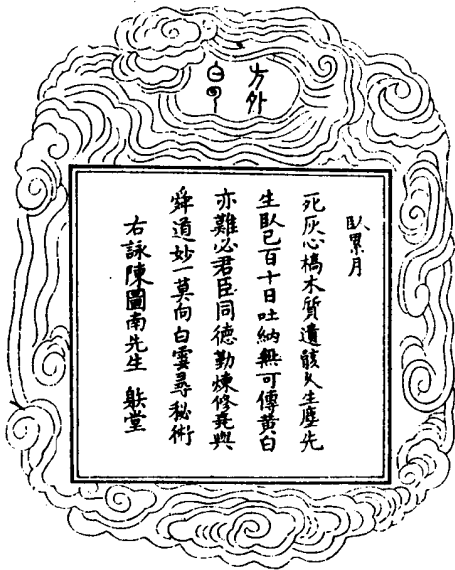 方外
白云
臥累月
死灰心槁木質遺骸久生塵先
生臥已百十日吐納無可傳黃白
亦難必君臣同德勤煉修堯與
舜道妙一莫向白雲尋秘術
右詠陳圖南先生 堂